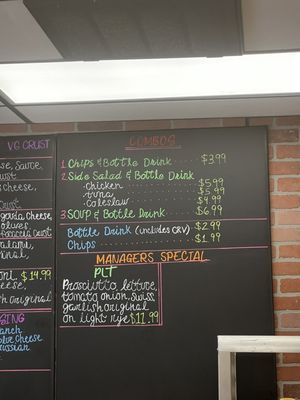 VG CRUST
Sauce,
Cheese,
Crust
gouda Cheese,
olives,
Focaccia Crust
salami,
$14.99
original
ranch
blue Cheese
russian
COMBOS
1. Chips & Bottle Drink $3.99
2. Side Salad & Bottle Drink
Chicken $5.99
tuna $5.99
Coleslaw $4.99
3. SOUP & Bottle Drink $6.99
Bottle Drink (includes CRV) $2.99
Chips $1.99
MANAGERS SPECIAL
PLT
Prosciutto lettuce,
tomato onion, Swiss,
garlish original
on light rye $17.99